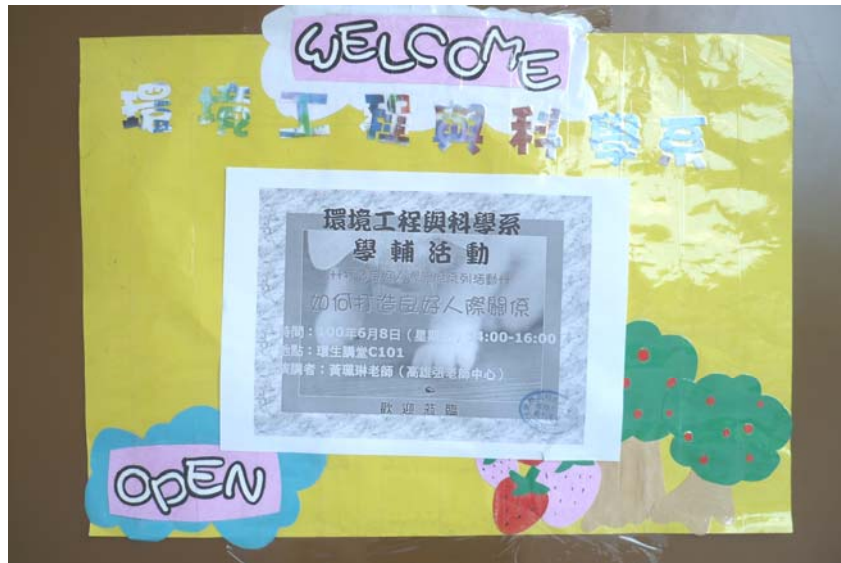 WELCOME
環境工程與科學系
環境工程與科學系
學輔活動
系列活動
如何打造良好人際關係
時間：100年6月8日（星期 4:00-16:00
地點：環生講堂C101
演講者：黃珮琳老師（高雄張老師中心）
歡迎蒞臨
OPEN